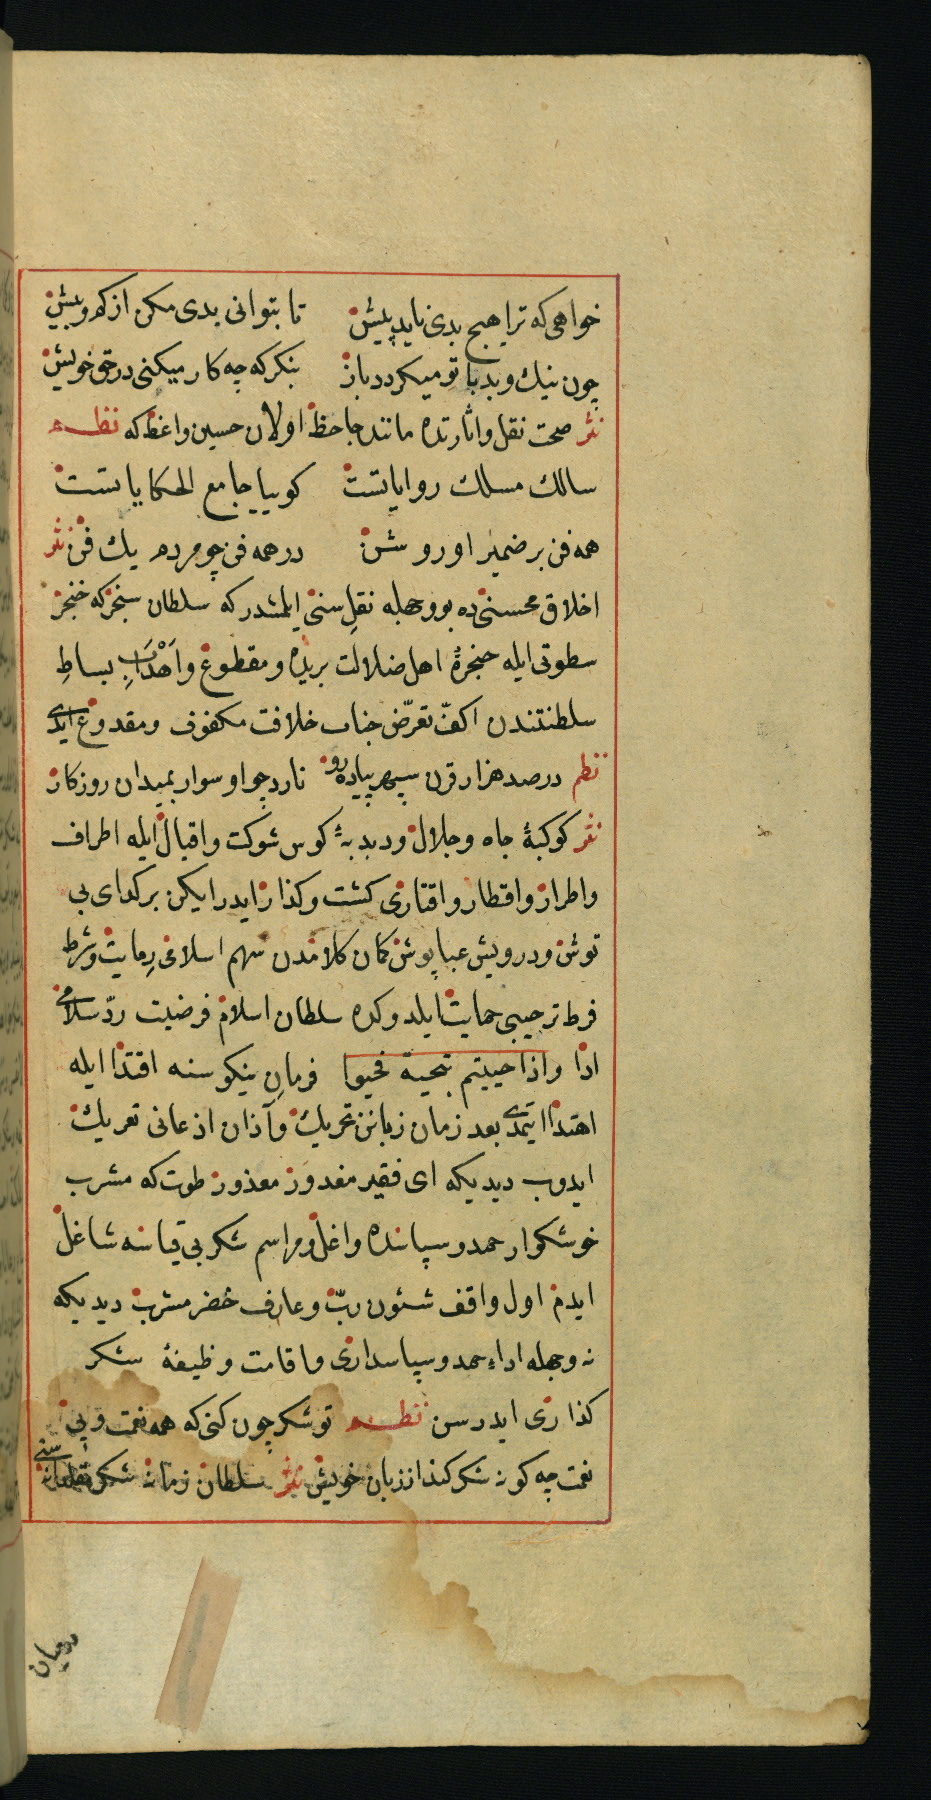 خواهی که ترا هیچ بدی ناید پیش تا بتوانی بدی مکن از کم و بیش
چون نیك و بد با تو میکردد باز بنکر که چه کار میکنی در حق خویش
نثر صحت نقل و اثارتده مانند جاحظ اولان حسین واعظ که نظم
سالك مسلك روایاتست کوییا جامع الحکایاتست
همه فن بر ضمیر او روشن در همه فن چو مردم یك فن نثر
اخلاق محسنی ده بو وجهله نقل سنی ایلمشدر که سلطان سنجر که خنجر
سطوتی ایله حنجرۀ اهل ضلالت بریده و مقطوع و اَهْدَابِ بساطِ
سلطنتندن اکفّ تعرّض جناب خلافت مکفوف و مقدوع ایدی
نظم در صد هزار قرن سپهر پیاده رو نارد چو او سوار بمیدان روزکار
نثر کوکبۀ جاه و جلال و دبدبۀ کوس شوکت و اقبال ایله اطراف
واطرار و اقطار و اقتاری کشت و کذار ایدر ایکن بر کدای بی
توش و درویش عباپوش کمان کلامدن سهم اسلامی رمایت و شرط
فرط ترحیبی حمایت ایلدوکده سلطان اسلام فرضیت ردّ سلامی
ادا واذا حییتم بتحیة فحیوا فرمانِ نیکوسنه اقتدا ایله
اهتدا ایتمدی بعد زمان زبانن تحریك و آذان اذعانی تعریك
ایدوب دیدیکه ای فقیر مغدور معذور طوت که مشرب
خوشکوار حمد و سپاسنده واغل و مراسم شکر بی قیاسنه شاغل
ایدم اول واقف شئون ربّ و عارف خضر مشرب دیدیکه
نه وجهله اداء حمد و سپاسداری و اقامت وظیفۀ شکر
کذاری ایدرسن نظم تو شکر چون کنی که همه نعمت و بی
نعمت چه کونه شکر کذارد زبان خویش نثر سلطان زمان شکر
دیان